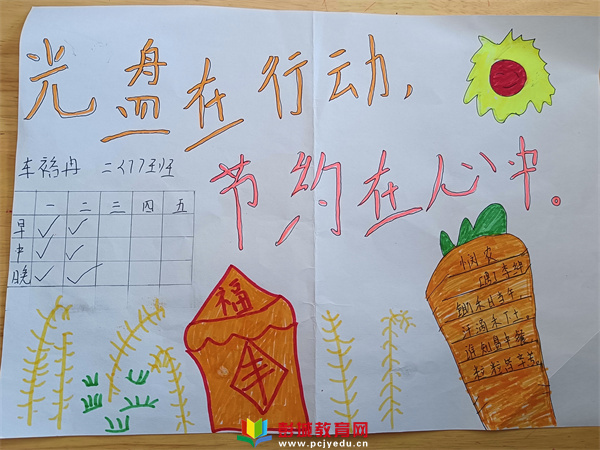 光盘在行动，
节约在心中。
二(7)班
一 二 三 四 五
早 ✓ ✓
中 ✓ ✓
晚 ✓ ✓
福
丰
悯农
李绅
锄禾日当午，
汗滴禾下土，
谁知盘中餐，
粒粒皆辛苦。
彭城教育网
www.pcjyedu.cn